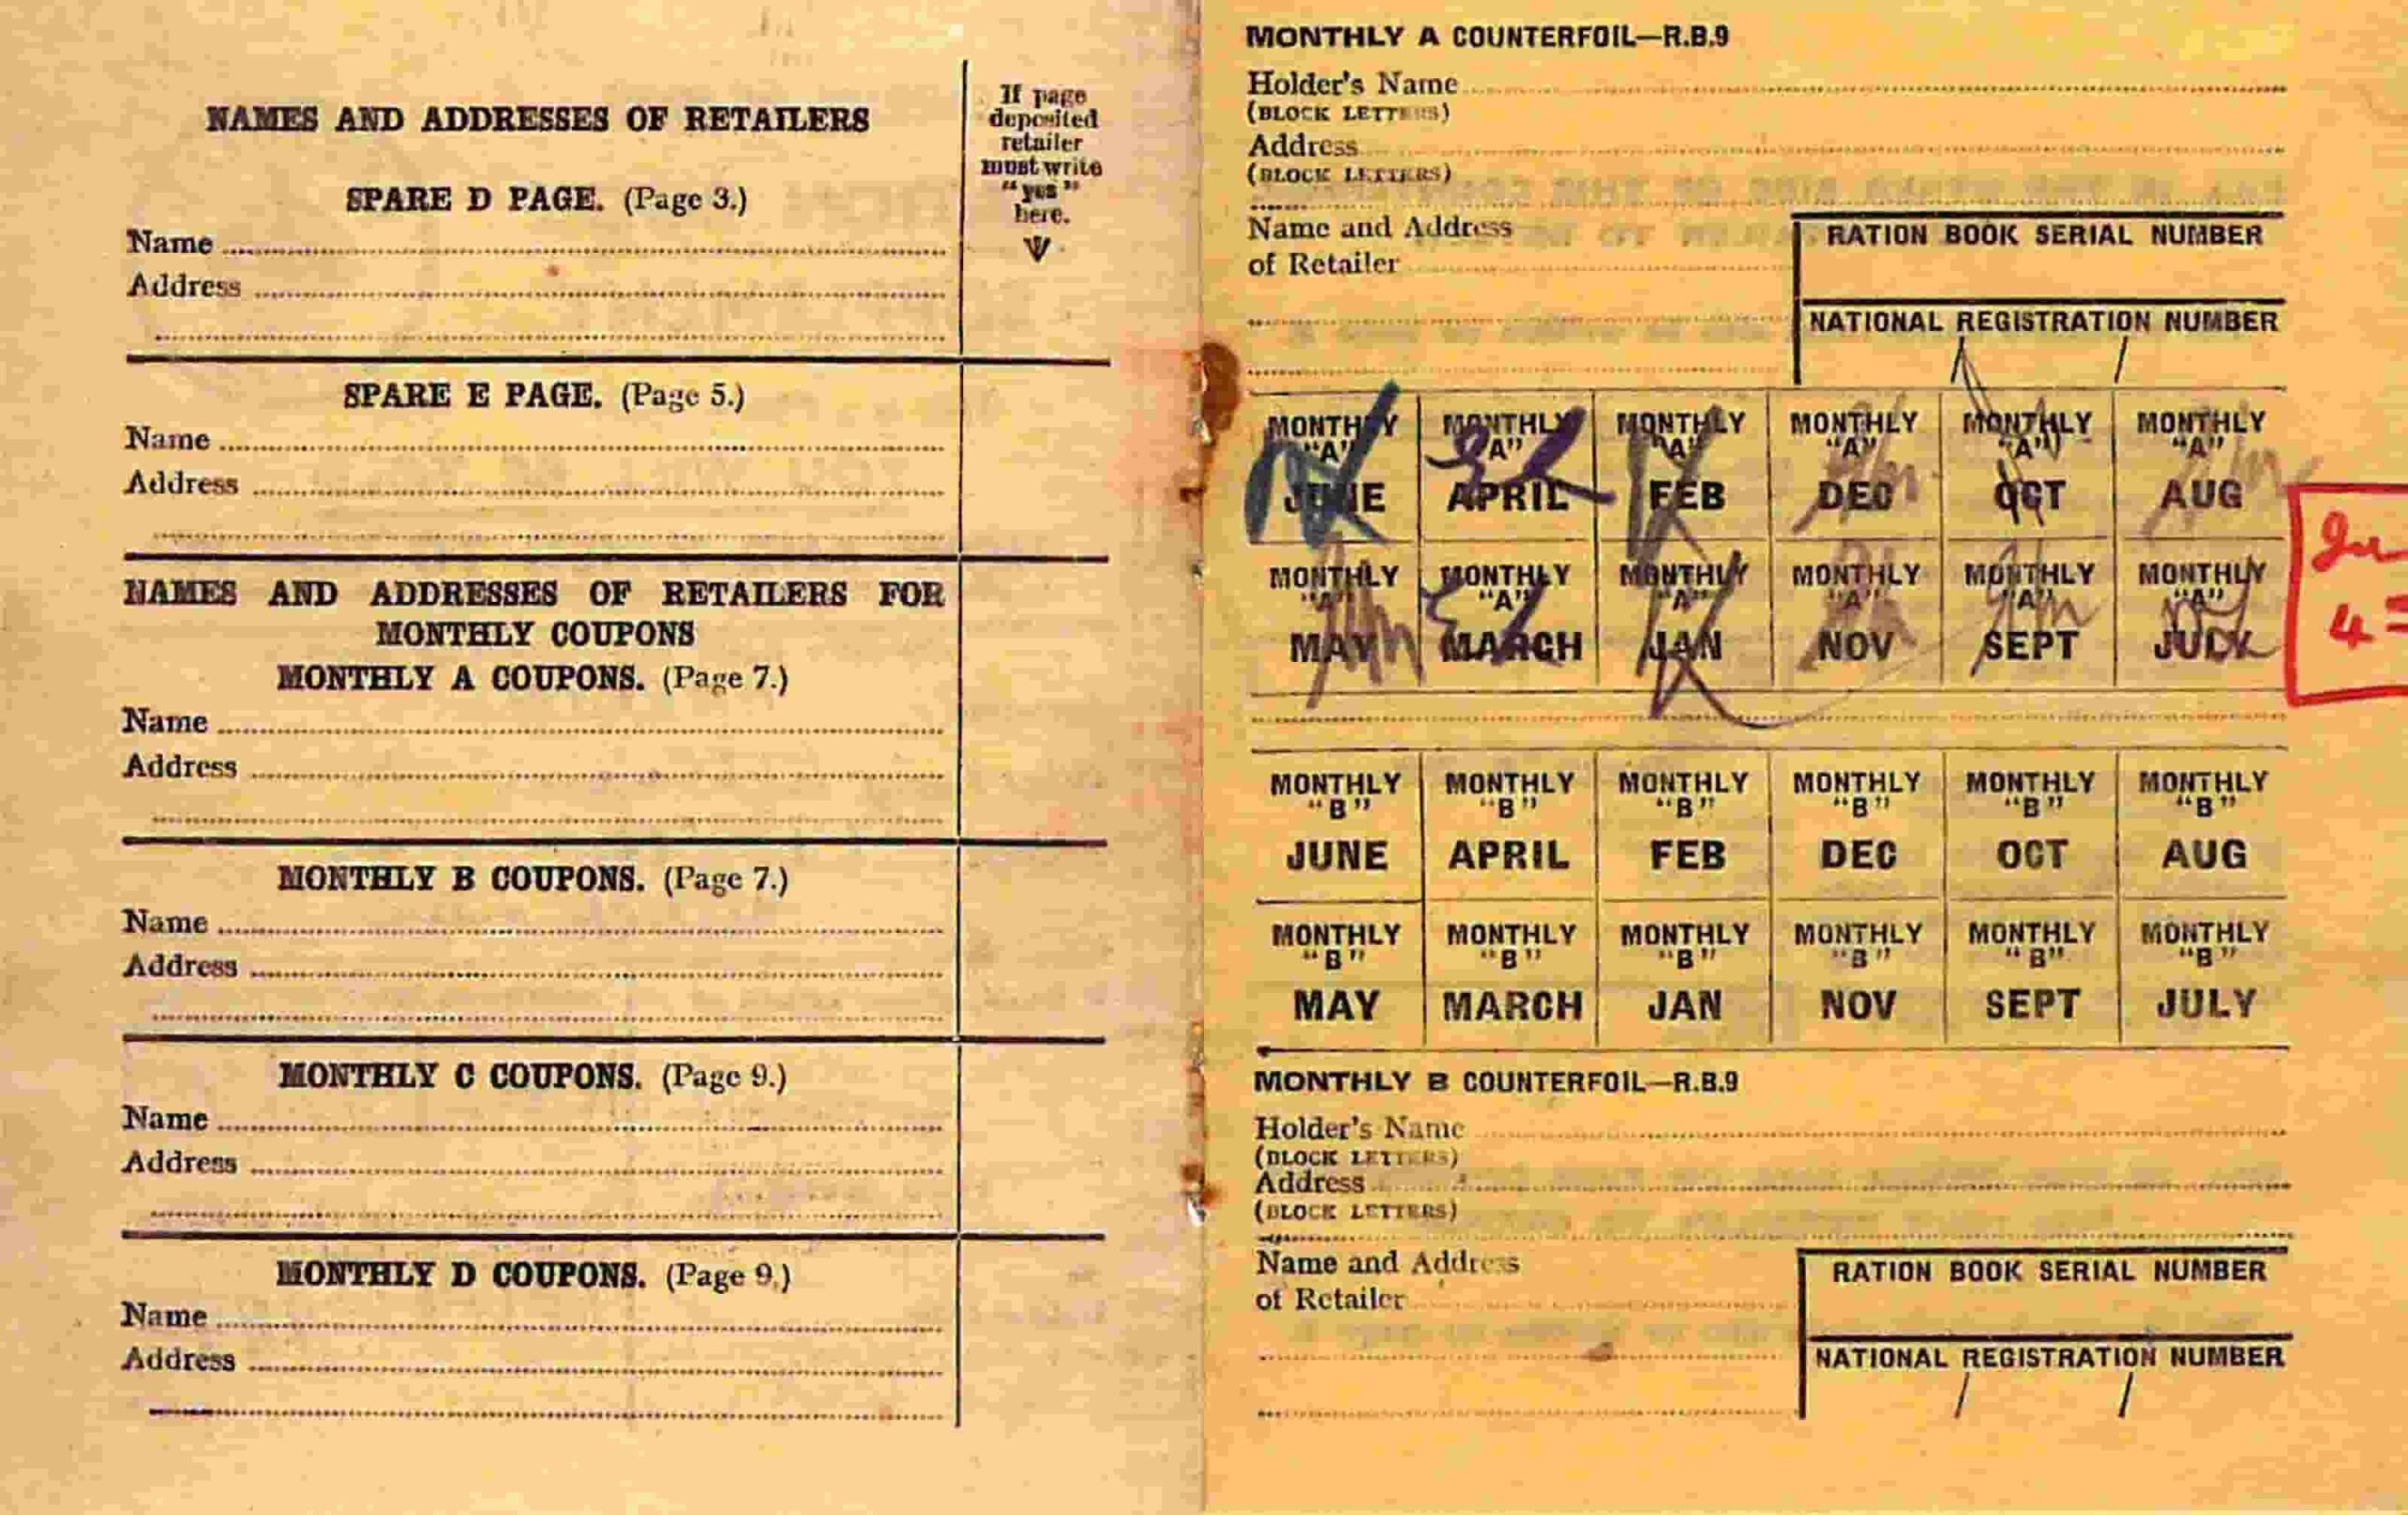 NAMES AND ADDRESSES OF RETAILERS
If page
deposited
retailer
must write
"yes"
here.
SPARE D PAGE. (Page 3.)
Name
Address
SPARE E PAGE. (Page 5.)
Name
Address
NAMES AND ADDRESSES OF RETAILERS FOR
MONTHLY COUPONS
MONTHLY A COUPONS. (Page 7.)
Name
Address
MONTHLY B COUPONS. (Page 7.)
Name
Address
MONTHLY C COUPONS. (Page 9.)
Name
Address
MONTHLY D COUPONS. (Page 9.)
Name
Address
MONTHLY A COUNTERFOIL—R.B.9
Holder's Name
(BLOCK LETTERS)
Address
(BLOCK LETTERS)
Name and Address
of Retailer
RATION BOOK SERIAL NUMBER
NATIONAL REGISTRATION NUMBER
/ /
MONTHLY MONTHLY MONTHLY MONTHLY MONTHLY MONTHLY
"A" "A" "A" "A" "A" "A"
JUNE APRIL FEB DEC OCT AUG
MONTHLY MONTHLY MONTHLY MONTHLY MONTHLY MONTHLY
"A" "A" "A" "A" "A" "A"
MAY MARCH JAN NOV SEPT JULY
4
MONTHLY MONTHLY MONTHLY MONTHLY MONTHLY MONTHLY
"B" "B" "B" "B" "B" "B"
JUNE APRIL FEB DEC OCT AUG
MONTHLY MONTHLY MONTHLY MONTHLY MONTHLY MONTHLY
"B" "B" "B" "B" "B" "B"
MAY MARCH JAN NOV SEPT JULY
MONTHLY B COUNTERFOIL—R.B.9
Holder's Name
(BLOCK LETTERS)
Address
(BLOCK LETTERS)
Name and Address
of Retailer
RATION BOOK SERIAL NUMBER
NATIONAL REGISTRATION NUMBER
/ /